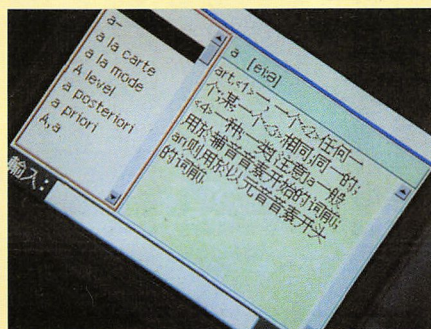 a-
a la carte
a la mode
A level
a posteriori
a priori
A, a
輸入:
a [ei;ə]
art.<1>一,一个<2>任何一
个;某一个<3>相同,同一的;
<4>一种,一类注意:a一般
用於辅音音素开始的词前,
an则用於以元音音素开头
的词前,